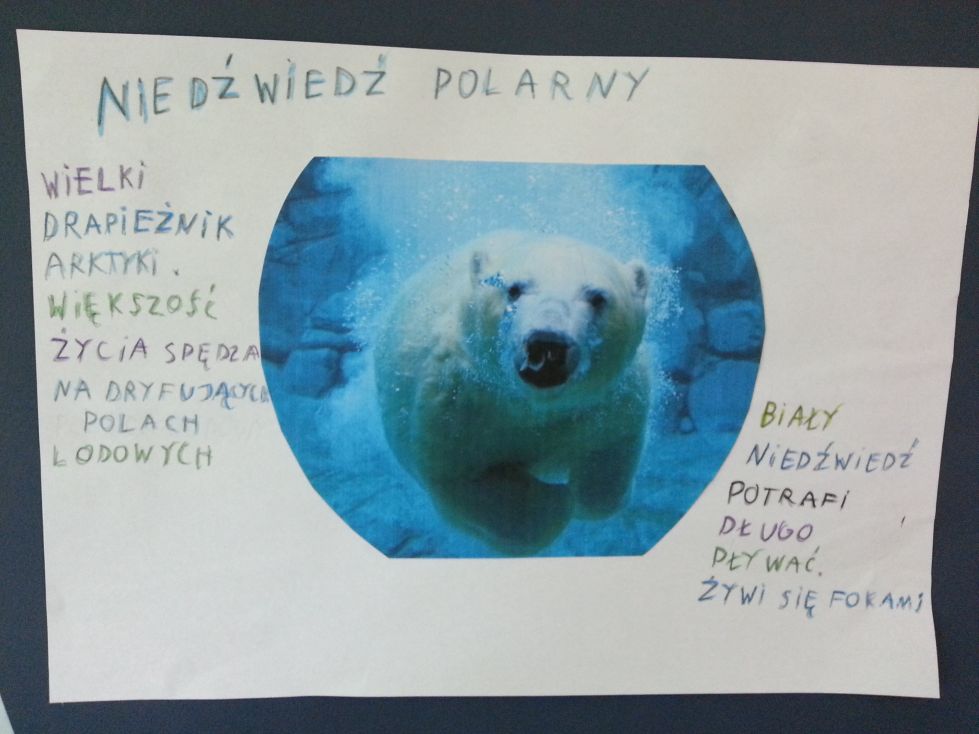 NIEDŹWIEDŹ POLARNY
WiELKi
DRAPiEŻNiK
ARKTYKi.
WiĘKSZOŚĆ
ŻYCiA SPĘDZA
NA DRYFUJĄCYCH
POLACH
LODOWYCH
BiAŁY
NiEDŹWiEDŹ
POTRAFi
DŁUGO
PŁYWAĆ.
ŻYWi SiĘ FOKAMi